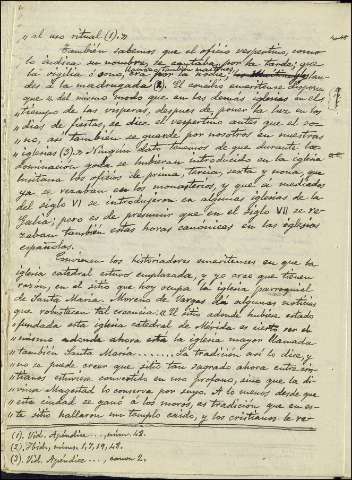 "al uso ritual (1)."
También sabemos que el oficio vespertino, como
lo indica su nombre, se cantaba por la tarde; que
la vigilia ó        , era por la noche;        lau-
des á la madrugada (2). El concilio emeritense dispone
que "del mismo modo que en las demás iglesias en el
tiempo de las vísperas, despues de poner la luz en los
días de fiestas, se dice el vespertino antes que el so-
no, así también se guarde por nosotros en nuestras
iglesias (3)." Ningún dato tenemos de que durante la
dominación goda se hubieran introducido en la iglesia
lusitana los oficios de prima, tercia, sexta y nona, que
ya se rezaban en los monasterios, y que á mediados
del siglo VI se introdujeron en algunas iglesias de la
Galia; pero es de presumir que en el siglo VII se re-
zaban también estas horas canónicas en las iglesias
españolas.
Convienen los historiadores emeritenses en que la
iglesia catedral estuvo emplazada, y yo creo que tienen
razon, en el sitio que hoy ocupa la iglesia parroquial
de Santa María. Moreno de Vargas dá algunas noticias
que robustecen tal creencia: "El sitio adonde hubiese estado
fundada esta iglesia catedral de Mérida es cierto ser el
mismo adonda ahora está la iglesia mayor llamada
también Santa María........ La tradición así lo dice, y
no se puede creer que sitio tan sagrado ahora entre cris-
tianos estuviese convertido en uso profano, sino que la di-
vina Magestad lo conserva por suyo. A lo menos desde que
esta ciudad se ganó á los moros, es tradición que en es-
te sitio hallaron un templo caido, y los cristianos le re-
(1). Vid. Apéndice ..., núm. 42.
(2). Ibid., núms. 1, 7, 19, 42.
(3). Vid. Apéndice ..., canon 2.